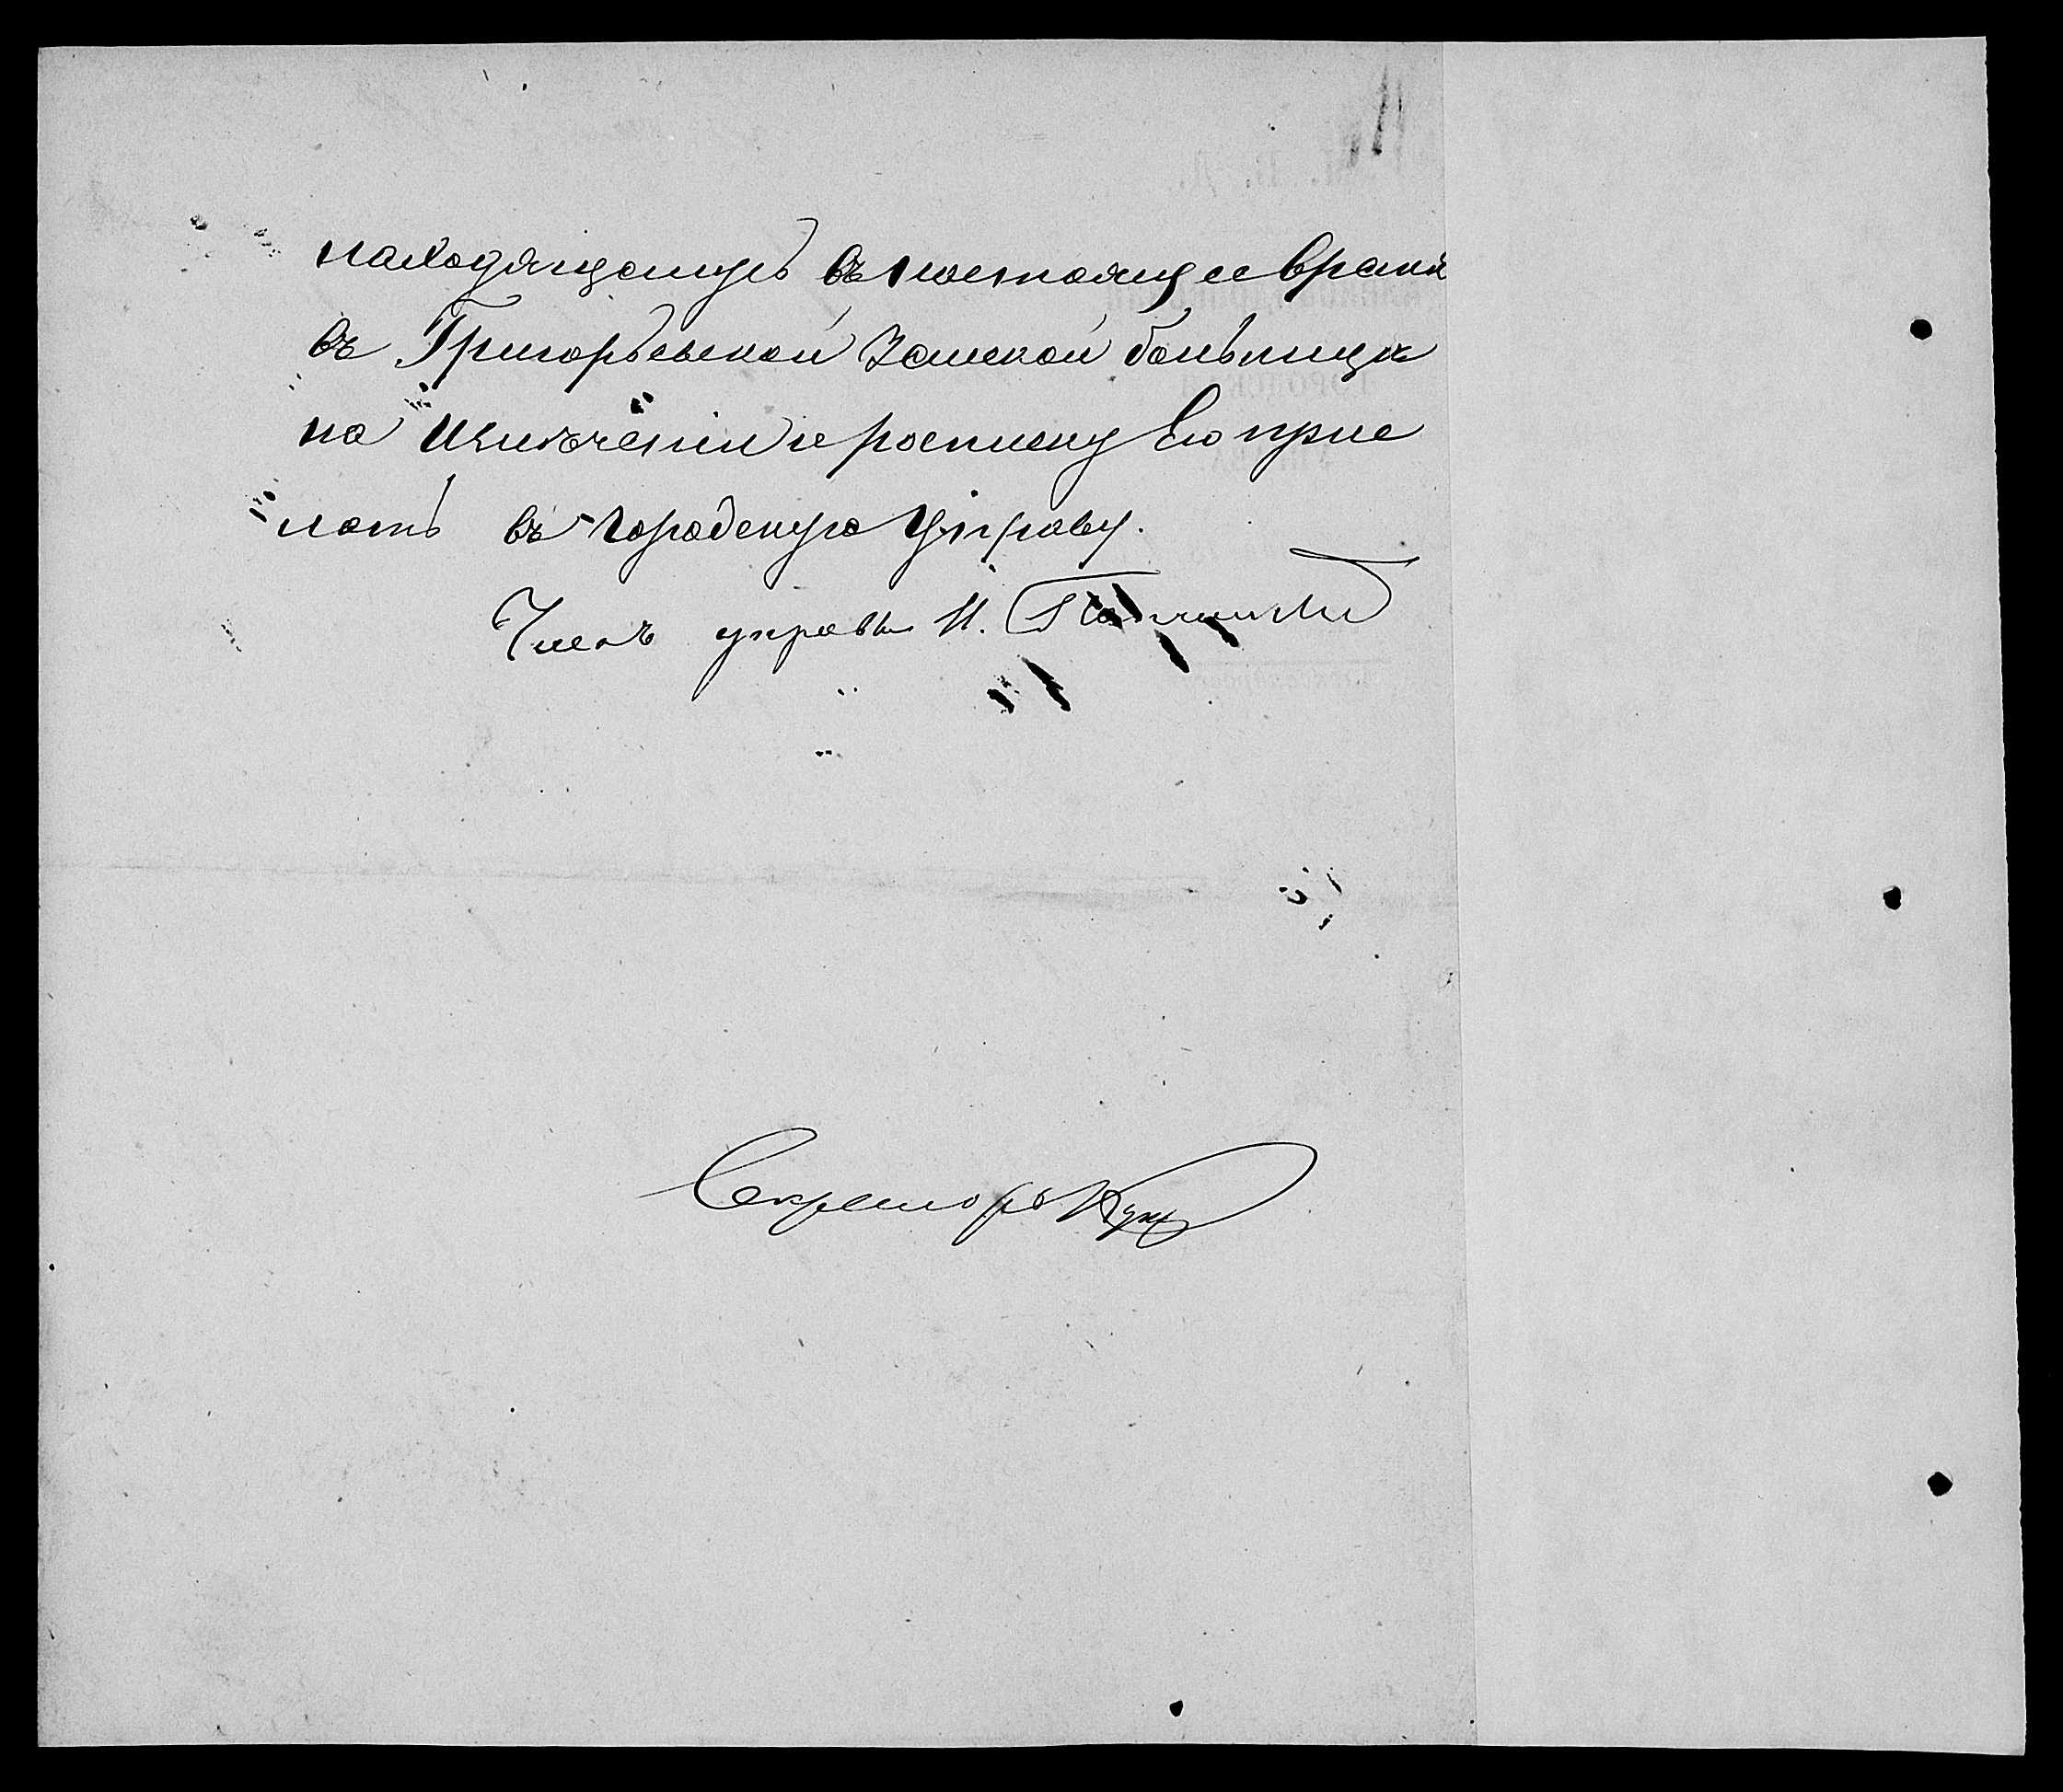 находящемуся въ настоящее время
въ Григорьевской Земской больницѣ
на излеченіи и росписку Его прис
лать въ Городскую Управу.
Членъ управы И.
Секретарь